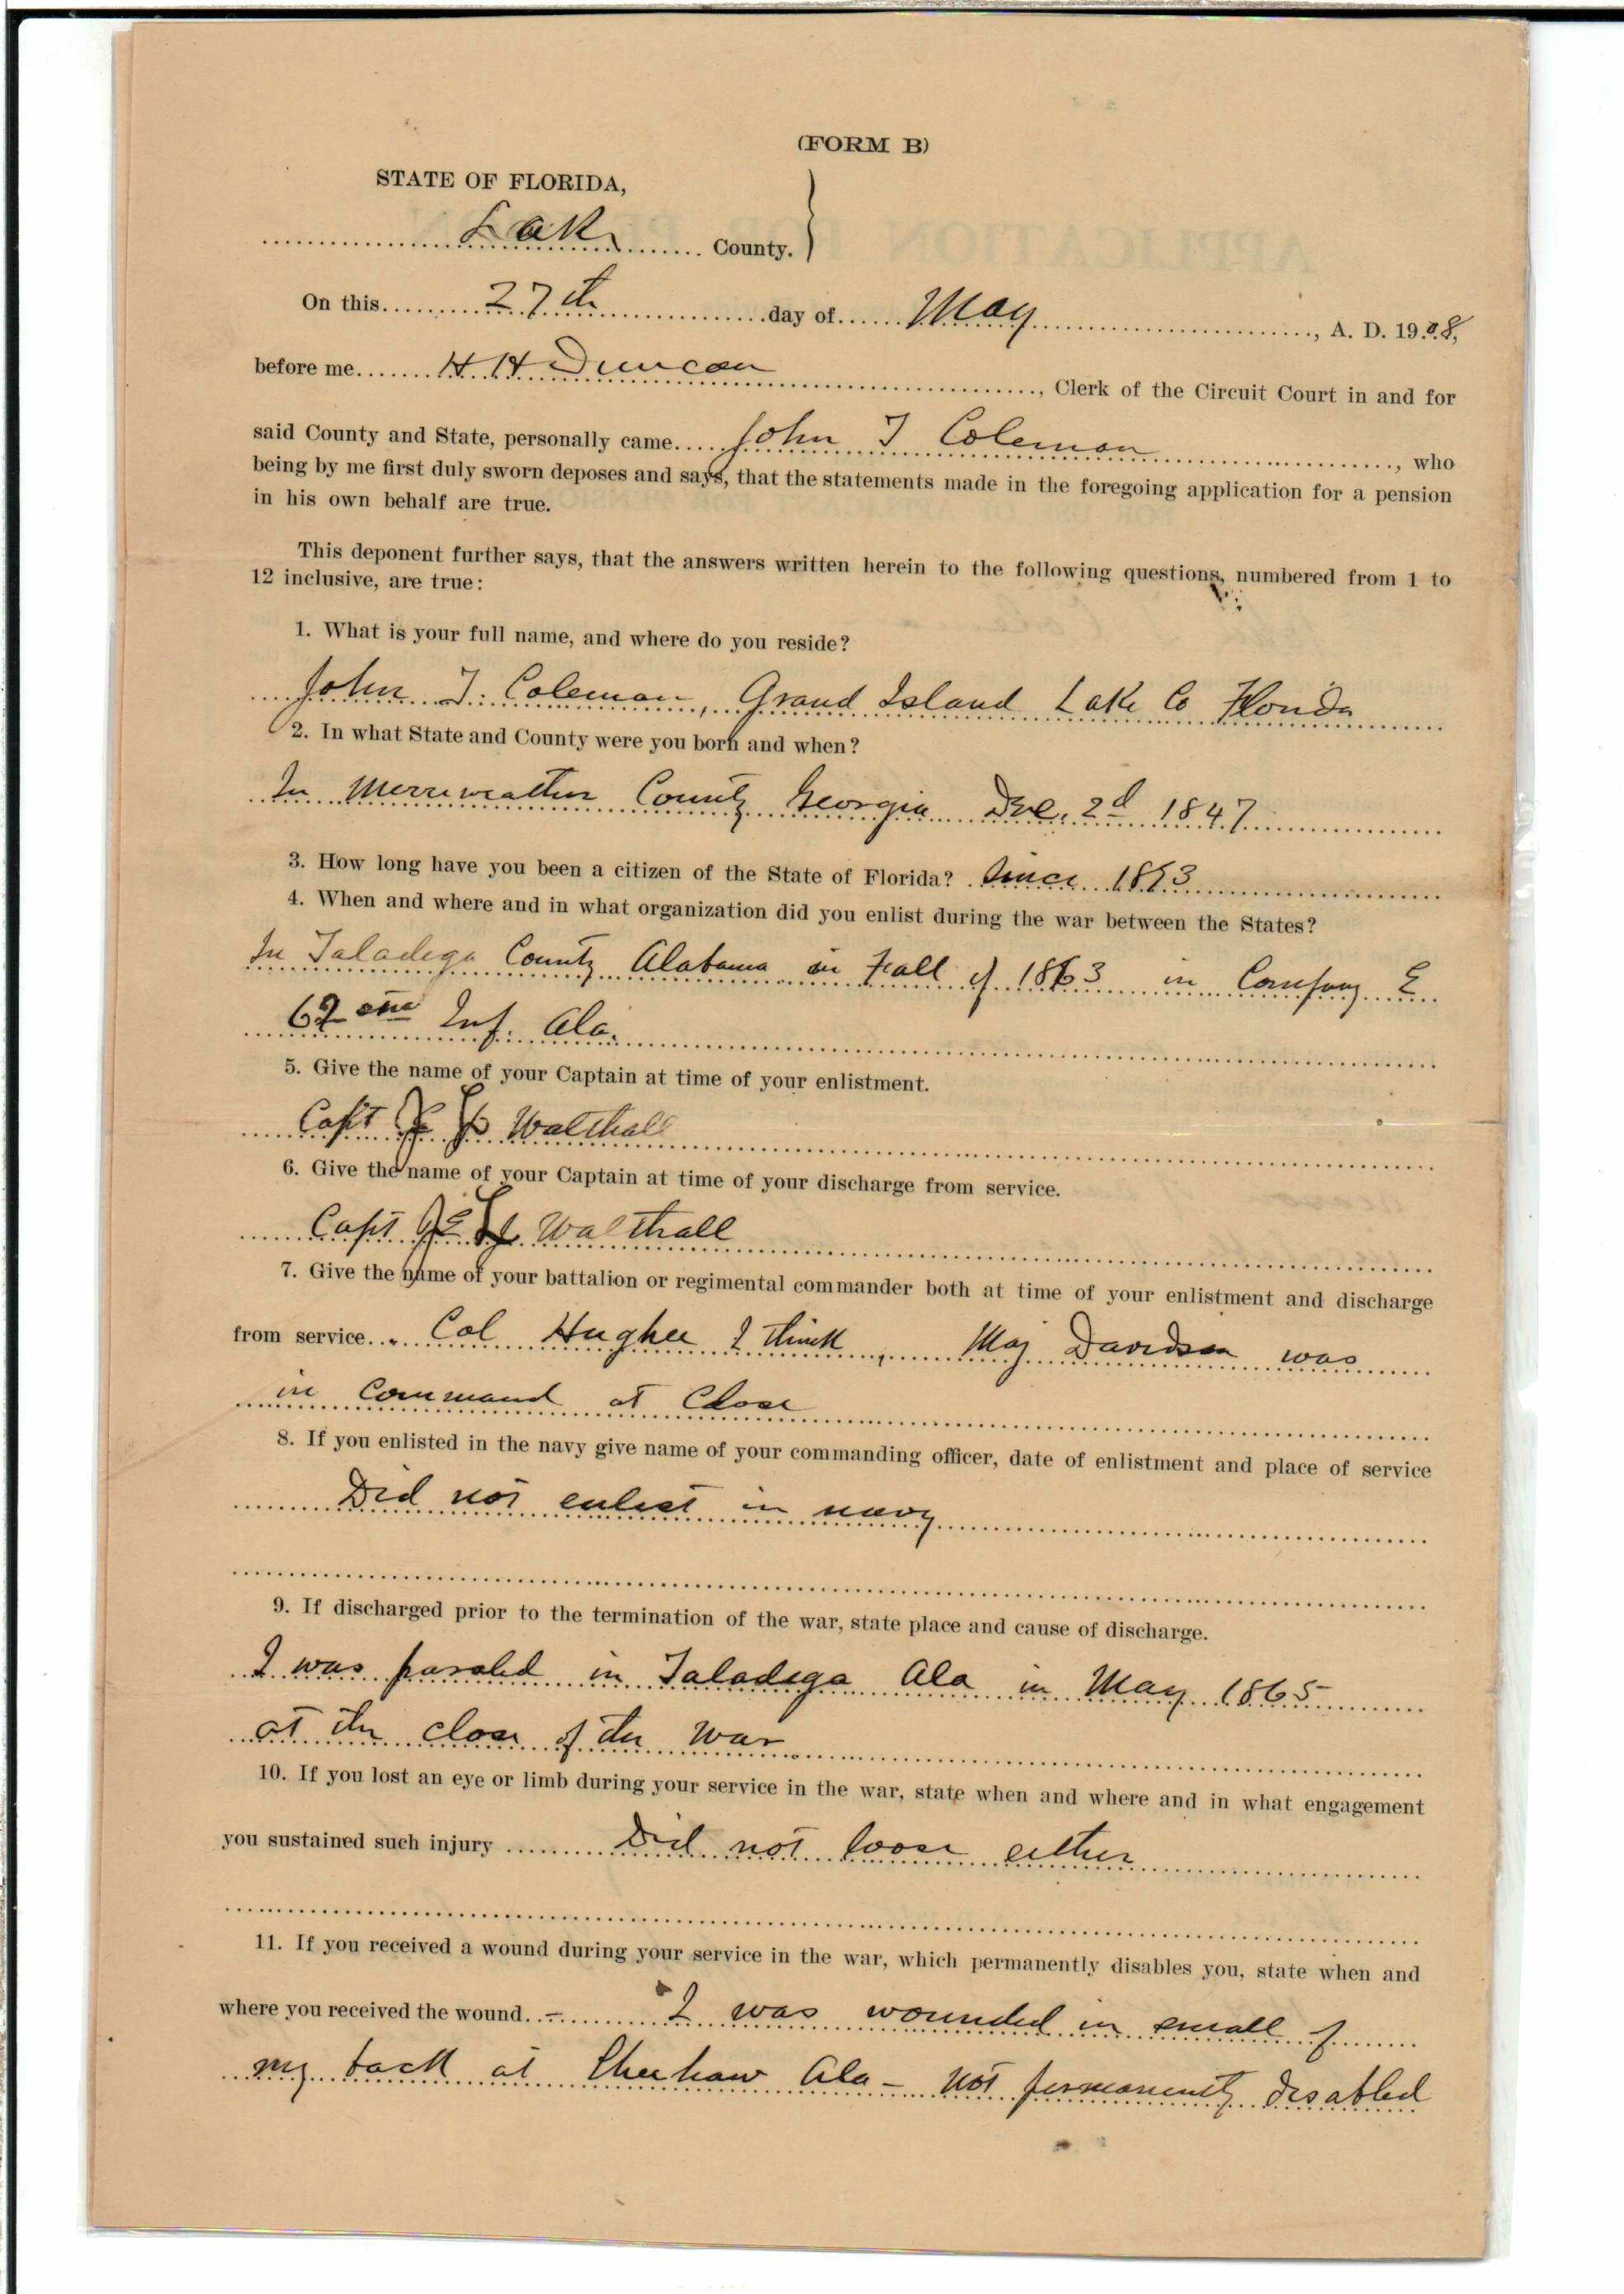 (FORM B)
STATE OF FLORIDA,
Lake County.
On this 27th day of May, A. D. 1908,
before me H H Duncan, Clerk of the Circuit Court in and for
said County and State, personally came John T Coleman, who
being by me first duly sworn deposes and says, that the statements made in the foregoing application for a pension
in his own behalf are true.
This deponent further says, that the answers written herein to the following questions, numbered from 1 to
12 inclusive, are true:
1. What is your full name, and where do you reside?
John T. Coleman, Grand Island Lake Co Florida
2. In what State and County were you born and when?
In Merriweather County Georgia Dec. 2d 1847
3. How long have you been a citizen of the State of Florida? Since
4. When and where and in what organization did you enlist during the war between the States?
In Taladega County Alabama in Fall of 1863 in Company E
Inf. Ala.
5. Give the name of your Captain at time of your enlistment.
Capt Walthall
6. Give the name of your Captain at time of your discharge from service.
Capt Walthall
7. Give the name of your battalion or regimental commander both at time of your enlistment and discharge
from service. Col Hughee I think, Maj Davidson was
in Command at Close
8. If you enlisted in the navy give name of your commanding officer, date of enlistment and place of service
Did not enlist in navy
9. If discharged prior to the termination of the war, state place and cause of discharge.
I was paroled in Taladega Ala in May 1865
at the close of the War
10. If you lost an eye or limb during your service in the war, state when and where and in what engagement
you sustained such injury Did not loose either
11. If you received a wound during your service in the war, which permanently disables you, state when and
where you received the wound. - I was wounded in small of
my back at Cheehaw Ala - not permanently disabled